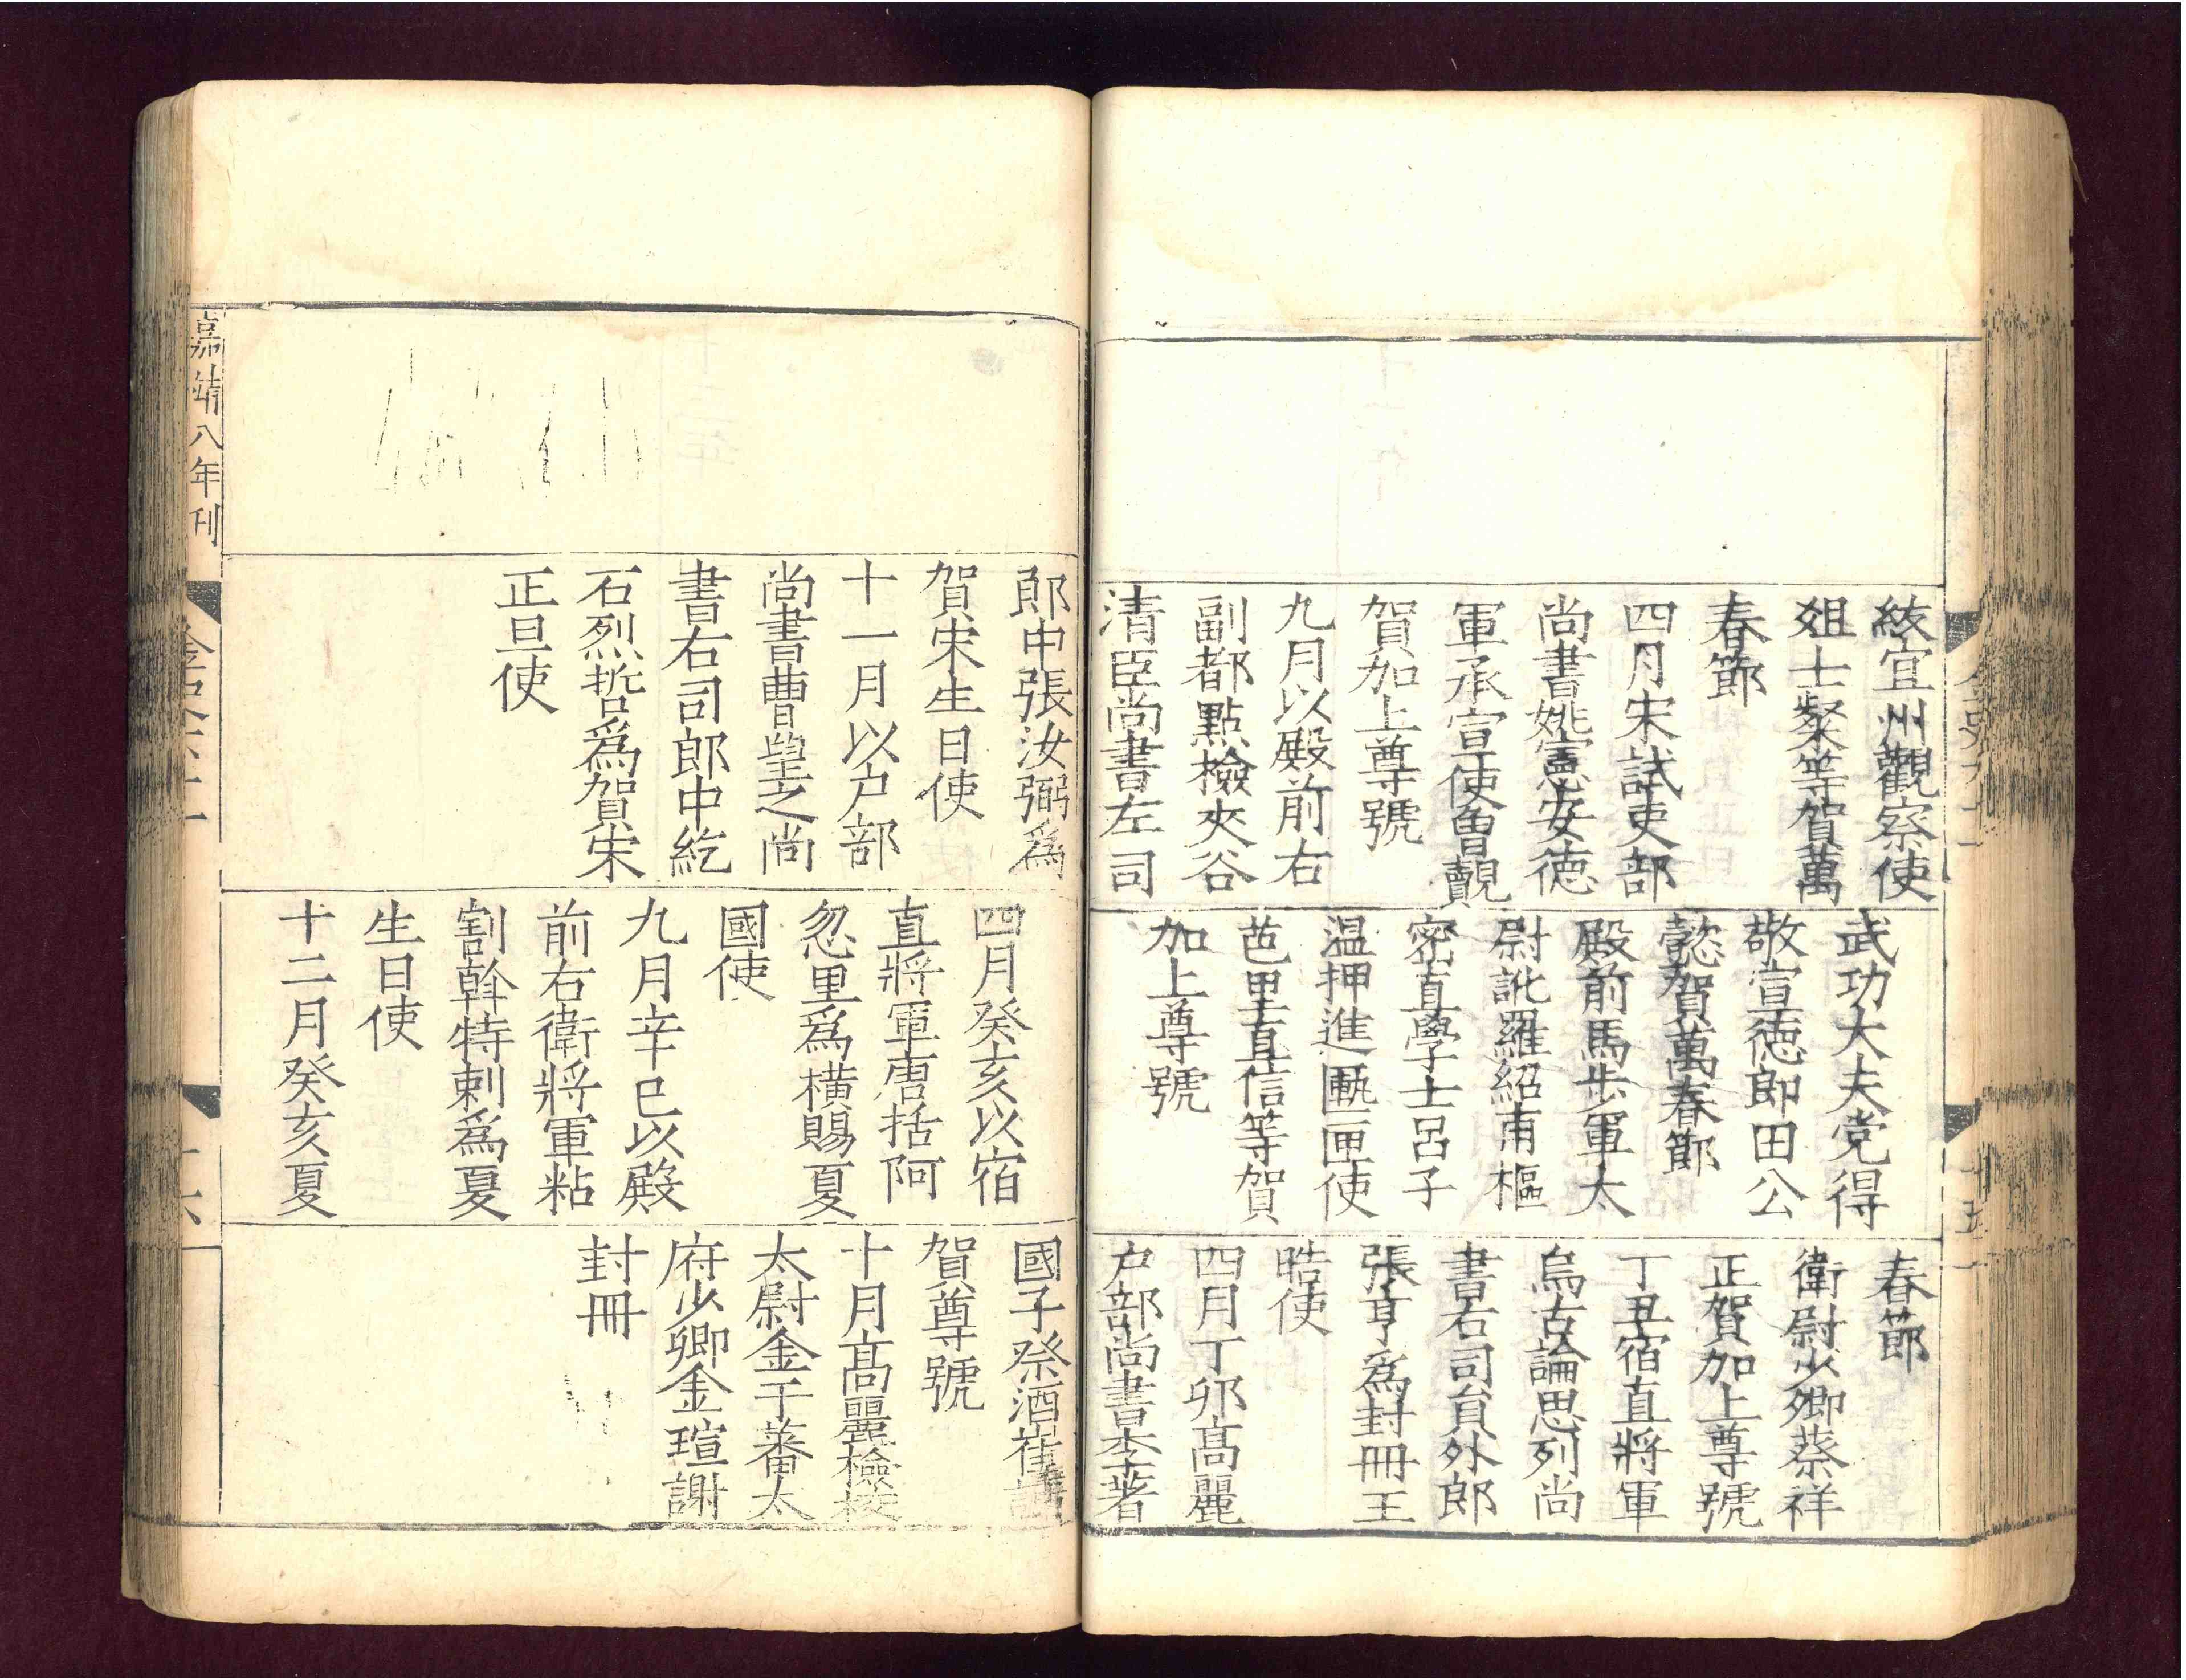 紱宜州觀察使
俎士粲等賀萬
春節
四月宋試吏部
尚書姚憲安德
軍承宣使曾覿
賀加上尊號
九月以殿前右
副都點檢夾谷
清臣尚書左司
武功大夫党得
敬宣德郎田公
懿賀萬春節
殿前馬步軍太
尉訛羅紹甫樞
密直學士呂子
温押進匭匣使
芭里直信等賀
加上尊號
春節
衛尉少卿蔡祥
正賀加上尊號
丁丑宿直將軍
烏古論思列尚
書右司員外郎
張亨爲封冊王
晧使
四月丁卯髙麗
户部尚書李著
十五
郎中張汝弼爲
賀宋生日使
十一月以户部
尚書曹望之尚
書右司郎中紇
石烈哲爲賀宋
正旦使
四月癸亥以宿
直將軍唐括阿
忽里爲横賜夏
國使
九月辛巳以殿
前右衛將軍粘
割斡特剌爲夏
生日使
十二月癸亥夏
國子祭酒崔
賀尊號
十月髙麗檢校
太尉金于蕃太
府少卿金瑄謝
封冊
嘉靖八年刊
十六